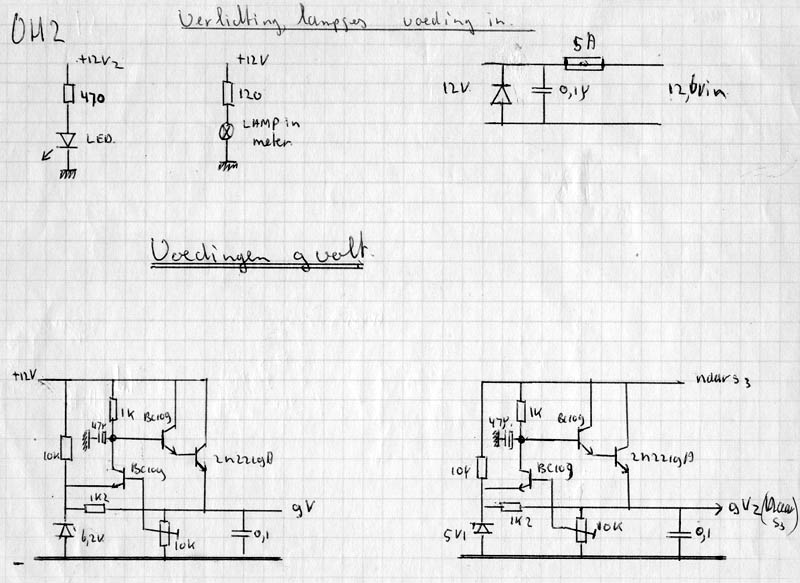 OH2
Verlichting, lampjes voeding in.
+12V2
470
LED.
+12V
120
LAMP in
meter.
5A
12V
0,1µ
12,6vin
Voedingen 9 volt.
+12V
1K
BC109
47µ
10K
2N2219A
BC109
1K2
9V
6,2V
10K
0,1
-
naar S3
1K
BC109
47µ
2N2219A
BC109
1K2
9V2
S3
5V1
10K
0,1